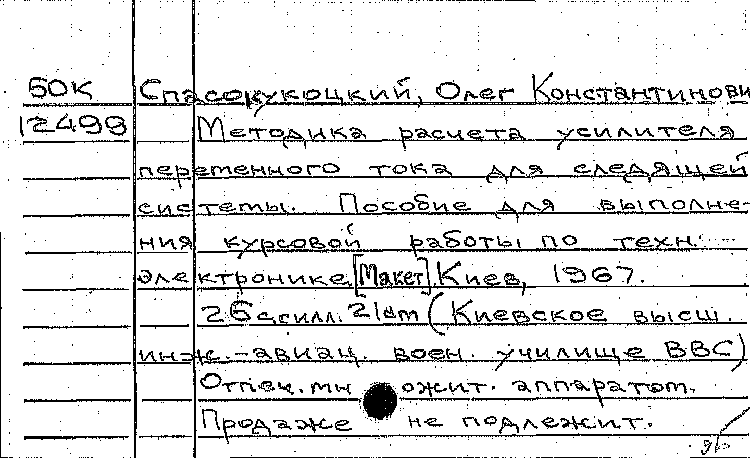 БОК Спасокукоцкий, Олег Константинови
12499 Методика расчета усилителя
переменного тока для следящей
системы. Пособие для выполне-
ния курсовой работы по техн.
электронике [Макет]. Киев, 1967.
26 с. илл. 21 см (Киевское высш.
инж.-авиац. воен. училище ВВС)
Отпеч. мн ожит. аппаратом.
Продаже не подлежит.